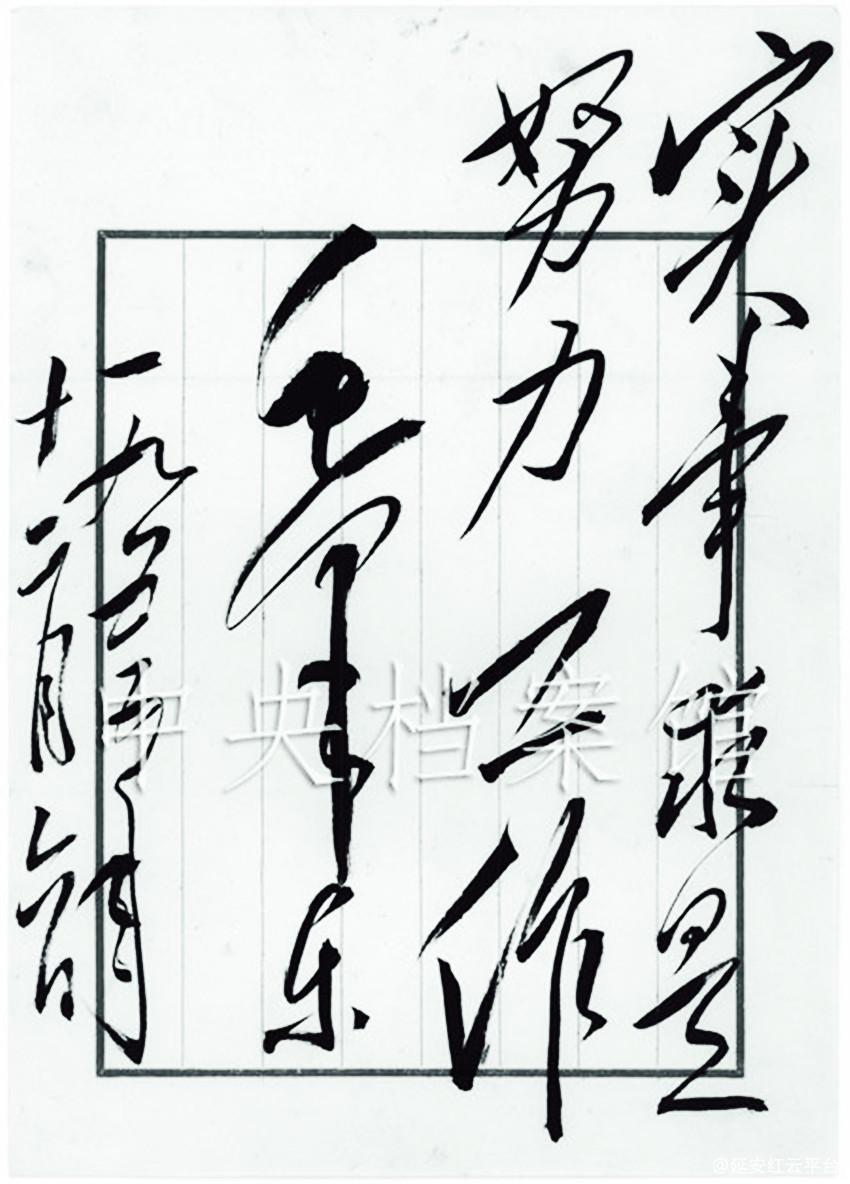 实事求是
努力工作
毛泽东
一九
十二月
中央档案馆
@延安红云平台